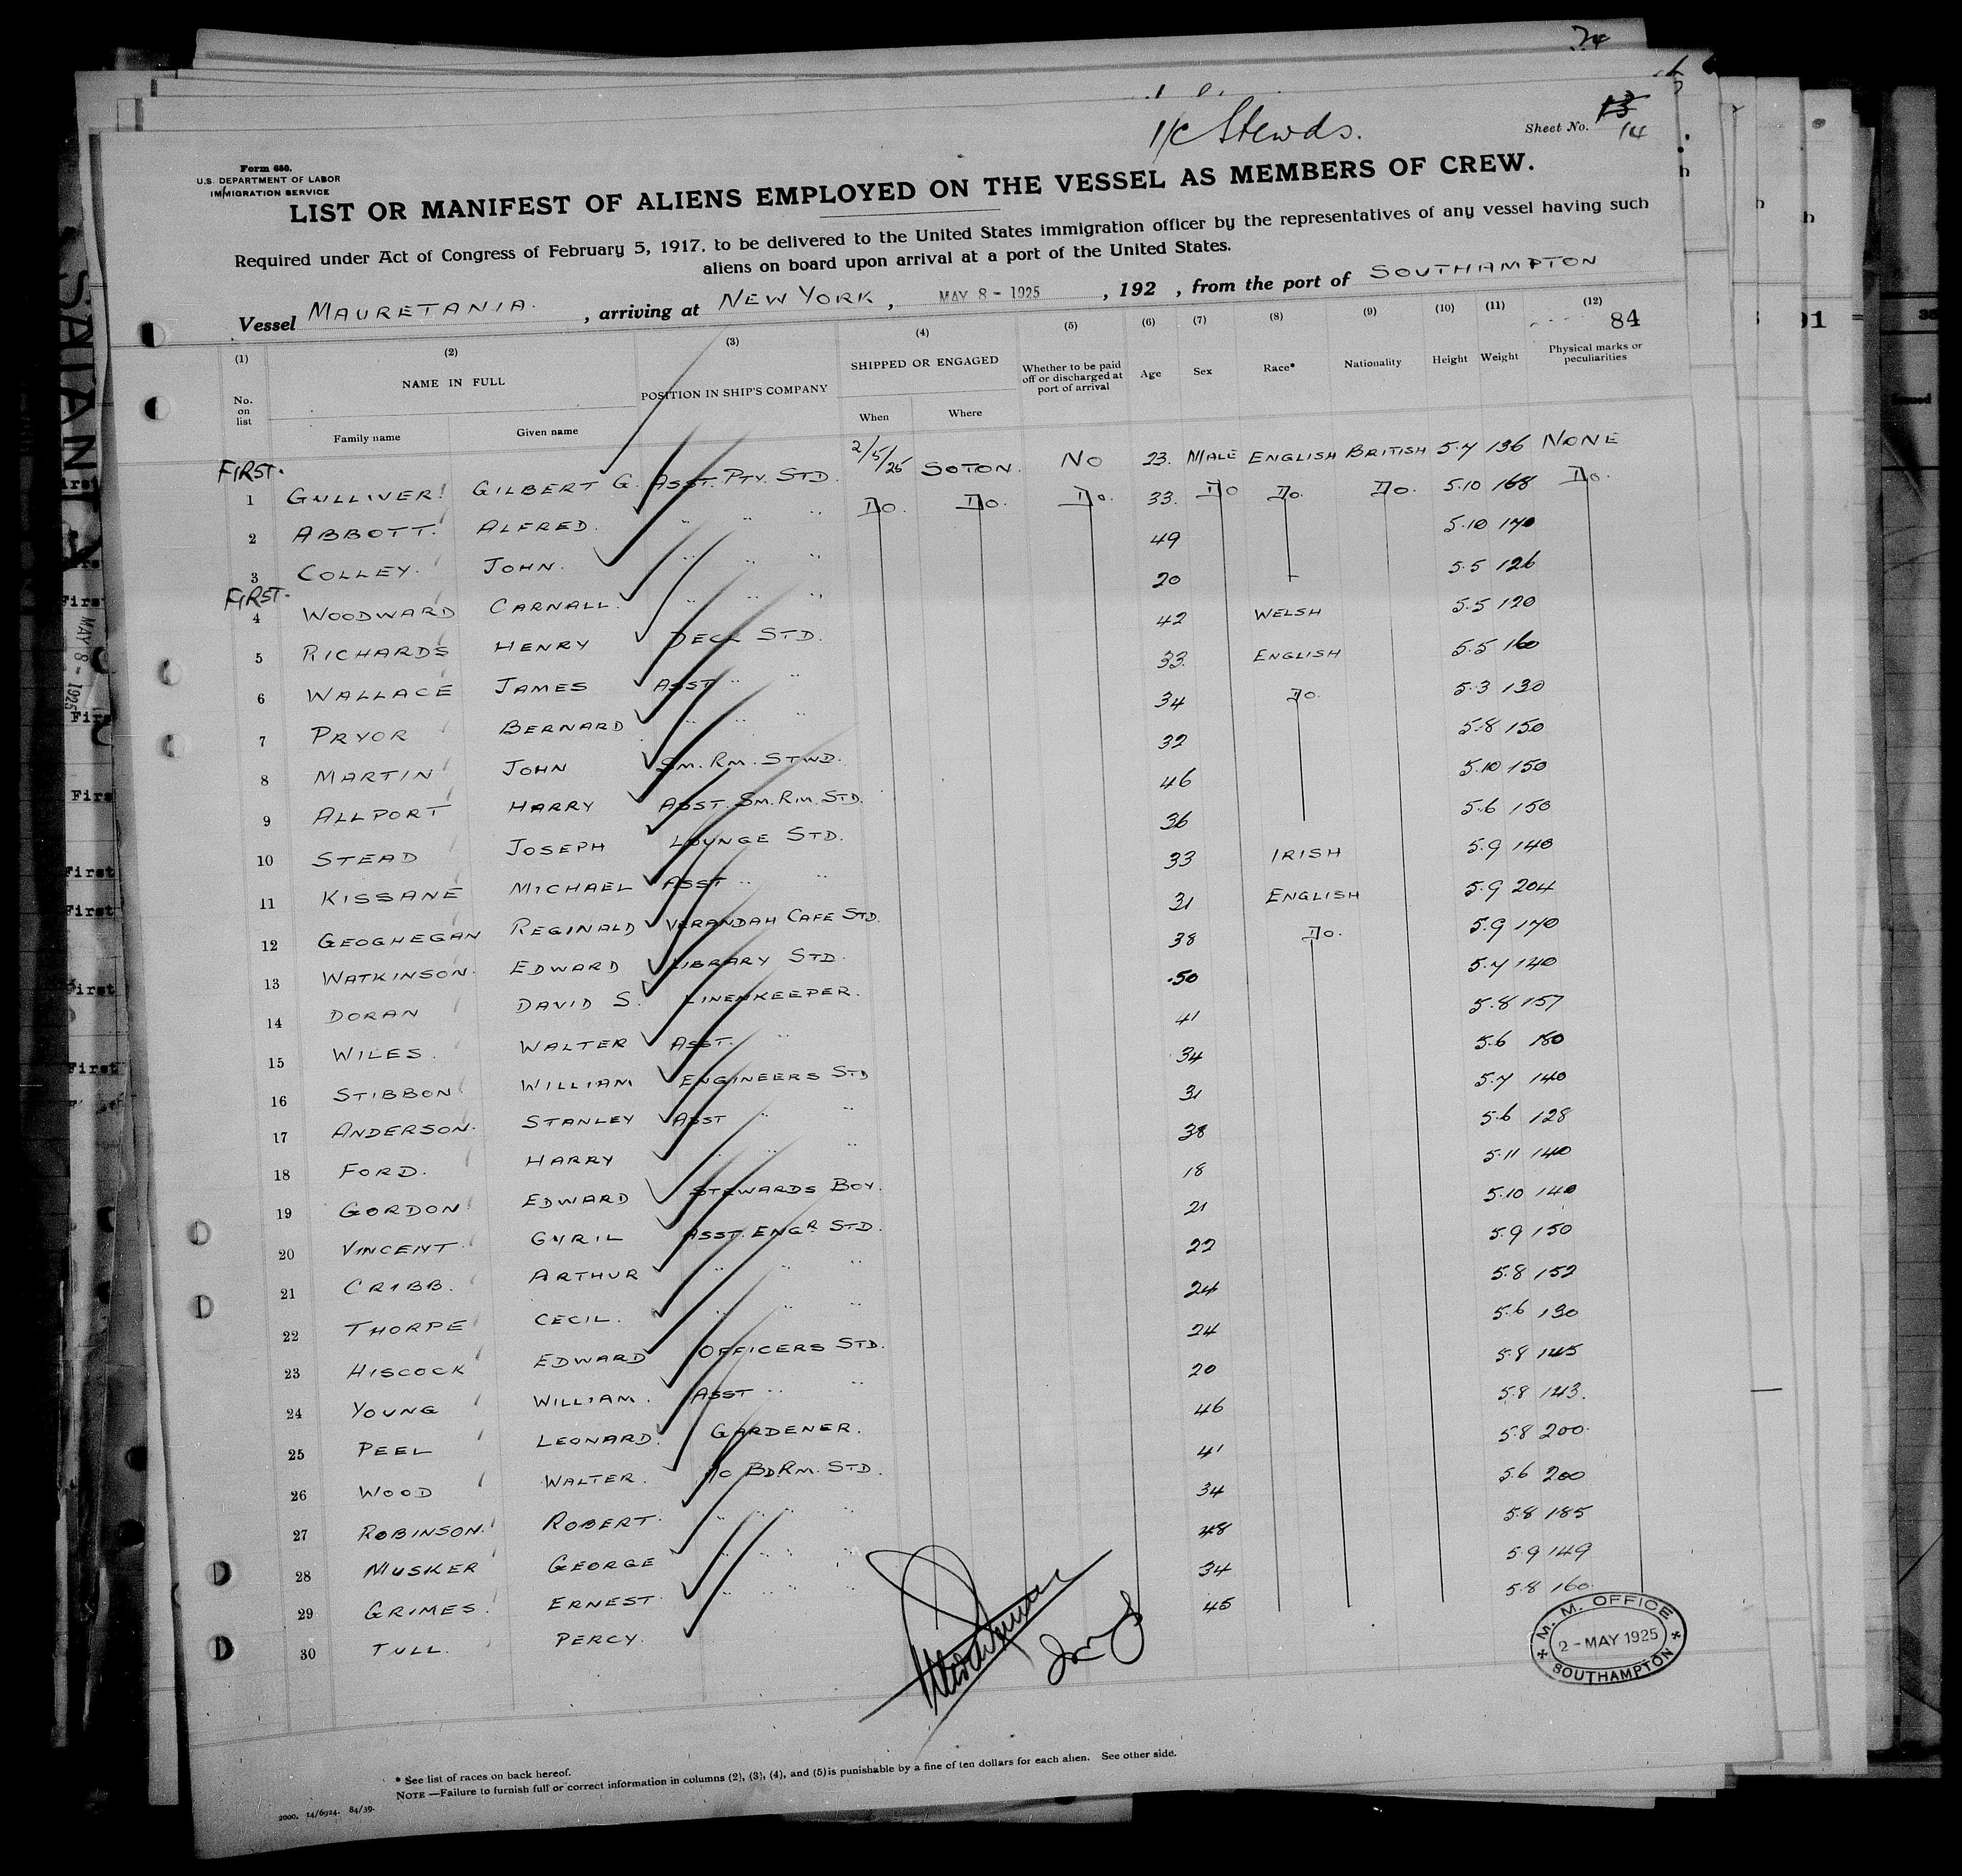 1/c Stewds.
Sheet No. 13 14
Form 680.
U.S. DEPARTMENT OF LABOR
IMMIGRATION SERVICE
LIST OR MANIFEST OF ALIENS EMPLOYED ON THE VESSEL AS MEMBERS OF CREW.
Required under Act of Congress of February 5, 1917, to be delivered to the United States immigration officer by the representatives of any vessel having such
aliens on board upon arrival at a port of the United States.
Vessel MAURETANIA. , arriving at NEW YORK , MAY 8 - 1925 , 192 , from the port of SOUTHAMPTON
(1) (2) (3) (4) (5) (6) (7) (8) (9) (10) (11) (12)
84
No. on list NAME IN FULL POSITION IN SHIP'S COMPANY SHIPPED OR ENGAGED Whether to be paid off or discharged at port of arrival Age Sex Race* Nationality Height Weight Physical marks or peculiarities
Family name Given name When Where
FIRST.
1 GULLIVER GILBERT G. ASST. PTY. STD. 2/5/25 SOTON. NO 23. MALE ENGLISH BRITISH 5.7 136 NONE
2 ABBOTT. ALFRED. " " " DO. DO. DO. 33. DO DO. DO. 5.10 168 DO.
3 COLLEY. JOHN. " " " 49 5.10 170
FIRST.
4 WOODWARD CARNALL. " " " 20 5.5 126
5 RICHARDS HENRY DECK STD. 42 WELSH 5.5 120
6 WALLACE JAMES ASST " " 33. ENGLISH 5.5 160
7 PRYOR BERNARD " " " 34 DO. 5.3 130
8 MARTIN JOHN SM. RM. STWD. 32 5.8 150
9 ALLPORT HARRY ASST. SM. RM. STD. 46 5.10 150
10 STEAD JOSEPH LOUNGE STD. 36 5.6 150
11 KISSANE MICHAEL ASST " " 33 IRISH 5.9 140
12 GEOGHEGAN REGINALD VERANDAH CAFE STD. 31 ENGLISH 5.9 204
13 WATKINSON. EDWARD LIBRARY STD. 38 DO. 5.9 170
14 DORAN DAVID S. LINENKEEPER. 50 5.7 140
15 WILES. WALTER ASST. " 41 5.8 157
16 STIBBON WILLIAM ENGINEERS STD 34 5.6 180
17 ANDERSON. STANLEY ASST " " 31 5.7 140
18 FORD. HARRY " " " 38 5.6 128
19 GORDON EDWARD STEWARDS BOY. 18 5.11 140
20 VINCENT CYRIL ASST. ENGR STD. 21 5.10 140
21 CRIBB. ARTHUR " " " 22 5.9 150
22 THORPE CECIL. " " " 24 5.8 152
23 HISCOCK EDWARD OFFICERS STD. 24 5.6 130
24 YOUNG WILLIAM. ASST " " 20 5.8 145
25 PEEL LEONARD. GARDENER. 46 5.8 143.
26 WOOD WALTER. 1/C BD.RM. STD. 41 5.8 200.
27 ROBINSON. ROBERT. " " " " 34 5.6 200
28 MUSKER GEORGE " " " " 48 5.8 185
29 GRIMES. ERNEST. " " " " 34 5.9 149
30 TULL. PERCY. 45 5.8 160.
M. M. OFFICE
2 - MAY 1925
SOUTHAMPTON
* See list of races on back hereof.
NOTE —Failure to furnish full or correct information in columns (2), (3), (4), and (5) is punishable by a fine of ten dollars for each alien. See other side.
2000. 14/6924. 84/39.